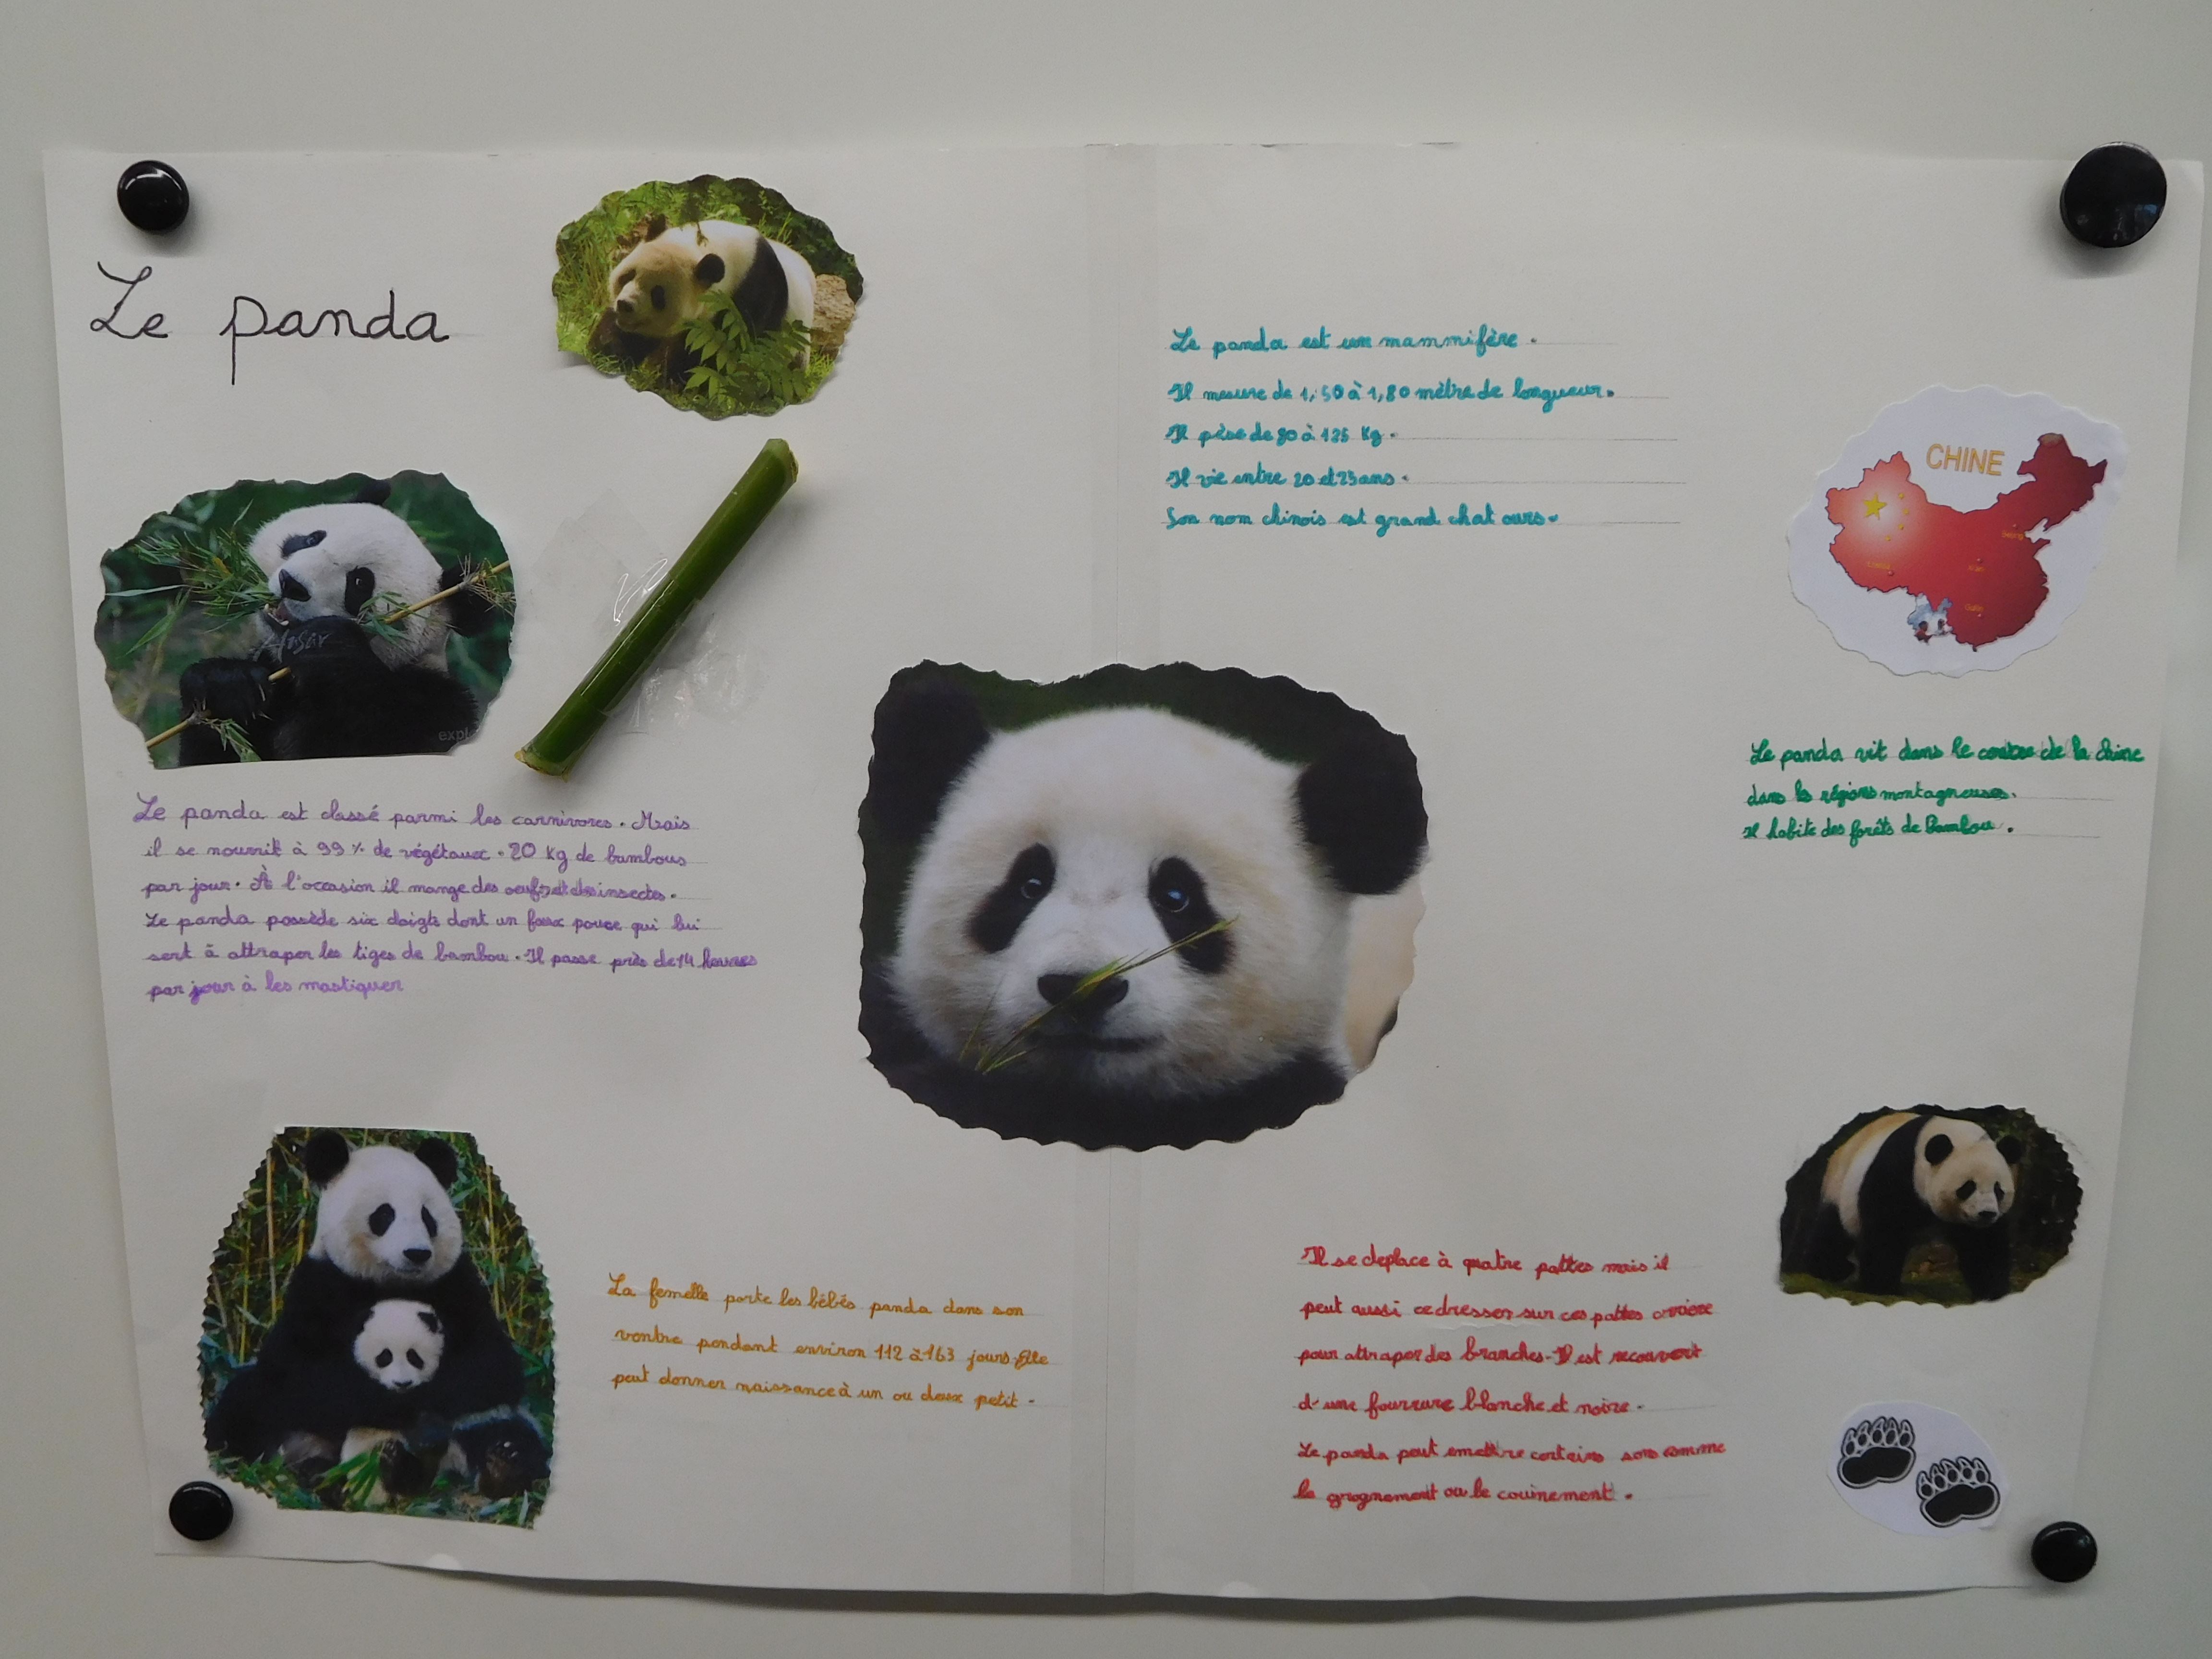 Le panda
Le panda est un mammifère.
Il mesure de 1,50 à 1,80 mètre de longueur.
Il pèse de 80 à 125 Kg.
Il vie entre 20 et 25 ans.
Son nom chinois est grand chat ours.
CHINE
Beijing
Xi'an
Guilin
Le panda vit dans le centre de la chine
dans les régions montagneuses.
Il habite des forêts de Bambou.
expl
Le panda est classé parmi les carnivores. Mais
il se nourrit à 99 % de végétaux. 20 kg de bambous
par jour. À l'occasion il mange des oeufs et des insectes.
Le panda possède six doigts dont un faux pouce qui lui
sert à attraper les tiges de bambou. Il passe près de 14 heures
par jour à les mastiquer
La femelle porte les bébés panda dans son
ventre pendant environ 112 à 163 jours. Elle
peut donner naissance à un ou deux petit.
Il se deplace à quatre pattes mais il
peut aussi ce dresser sur ces pattes arriere
pour attraper des branches. Il est recouvert
d'une fourrure blanche et noire.
Le panda peut emettre certains sons comme
le grognement ou le couinement.